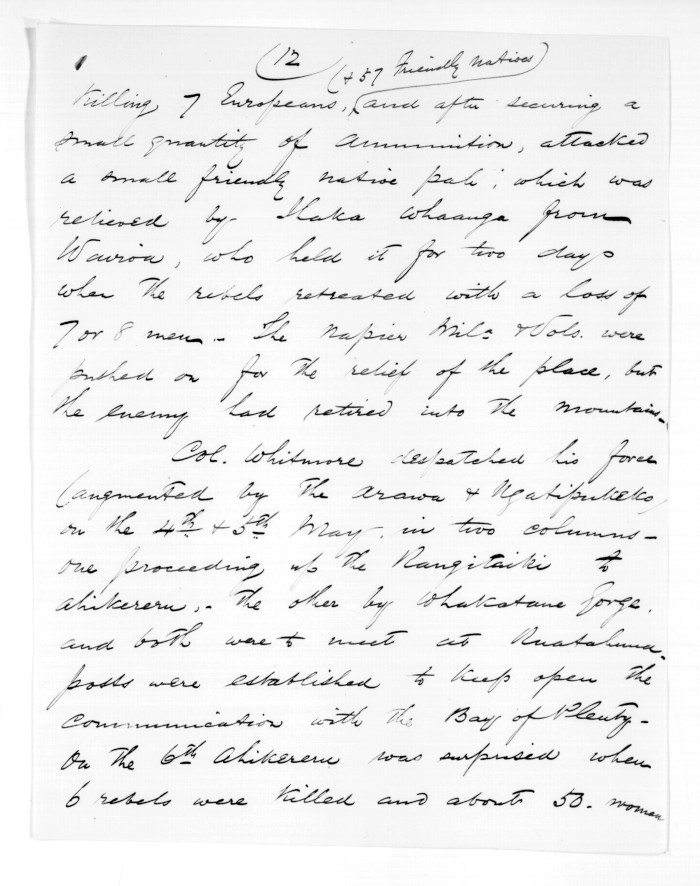 (12
(+ 57 Friendly Natives)
Killing 7 Europeans, (and after securing a
small quantity of ammunition, attacked
a small friendly native pah; which was
relieved by Ihaka Whaanga from
Wairoa, who held it for two days
when the rebels retreated with a loss of
7 or 8 men. - The Napier Mila & Vols. were
pushed on for the relief of the place, but
the enemy had retired into the mountains -
Col. Whitmore despatched his force
(augmented by the Arawa & Ngatipukeko)
on the 4th & 5th May, in two columns -
one proceeding up the Rangitaiki to
Ahikereru, - the other by Whakatane Gorge,
and both were to meet at Ruatahuna -
posts were established to keep open the
communication with the Bay of Plenty -
On the 6th Ahikereru was surprised when
6 rebels were killed and about 50. women